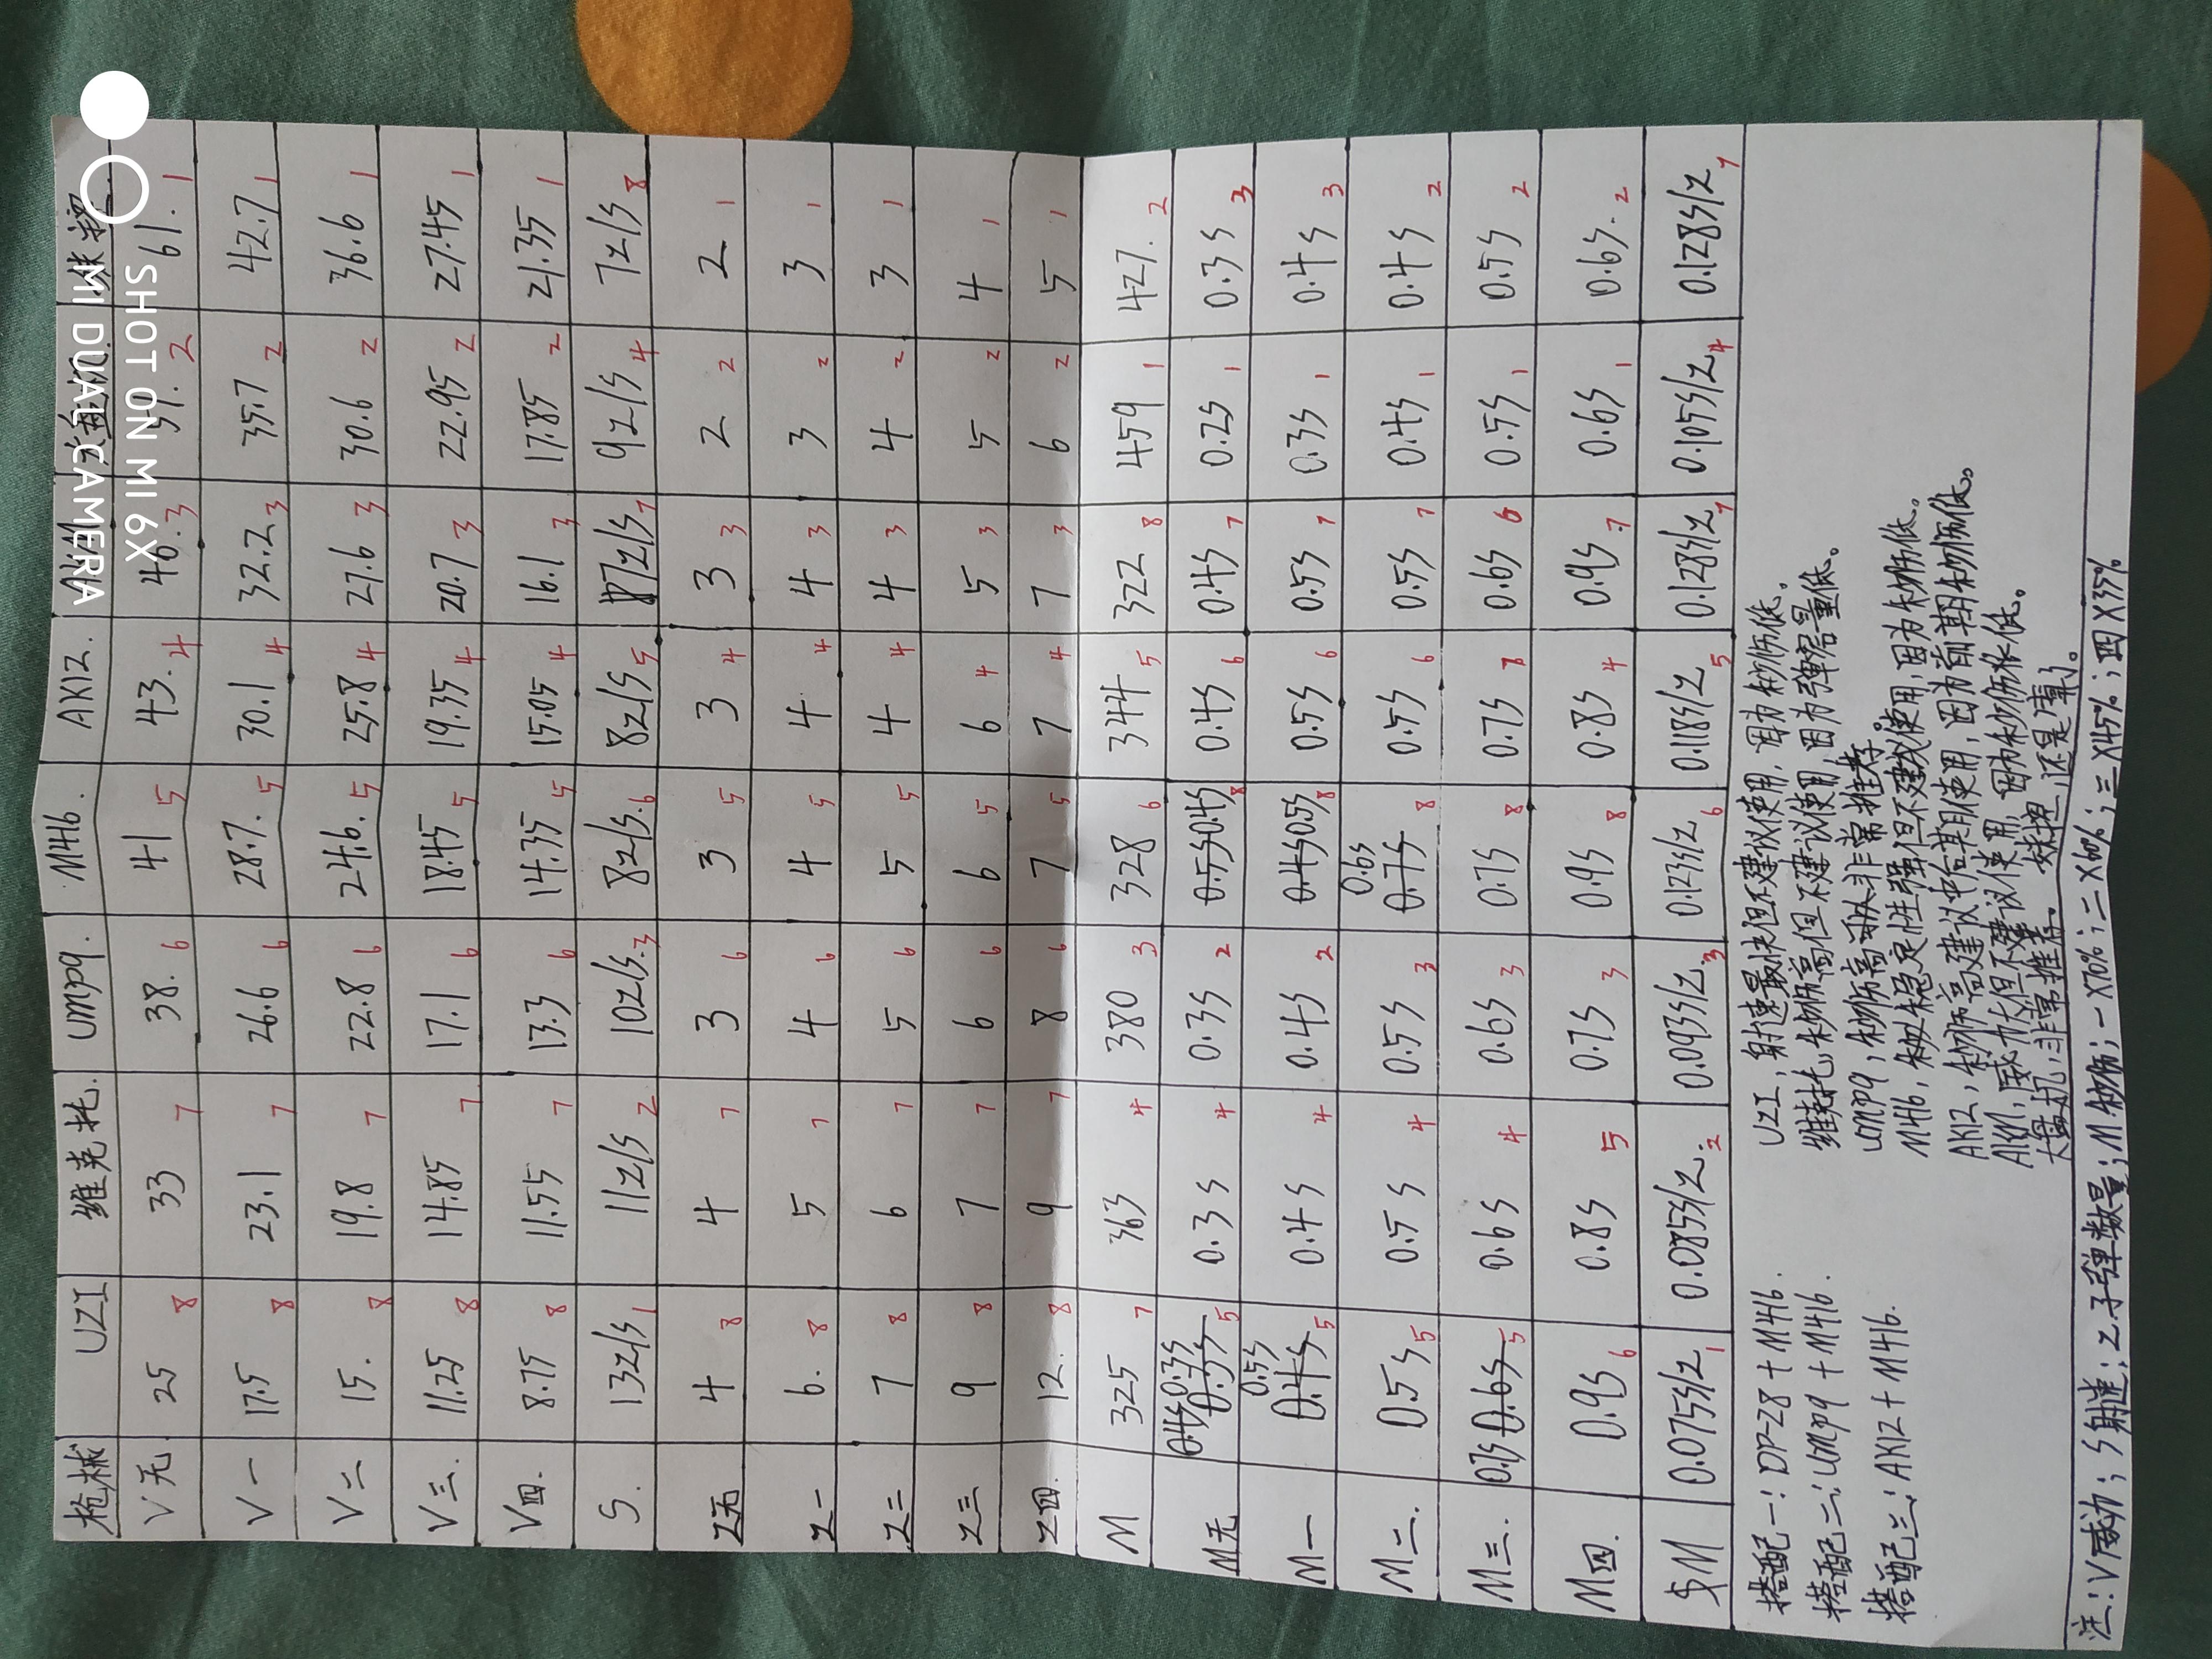 枪械 UZI 维克托. UMP9. M416. AK12. AKM
V无 25 8 33 7 38. 6 41 5 43. 4 46. 3 51. 2 61. 1
V一 17.5 8 23.1 7 26.6 6 28.7. 5 30.1 4 32.2 3 35.7 2 42.7 1
V二 15. 8 19.8 7 22.8 6 24.6. 5 25.8 4 27.6 3 30.6 2 36.6 1
V三. 11.25 8 14.85 7 17.1 6 18.45 5 19.35 4 20.7 3 22.95 2 27.45 1
V四. 8.75 8 11.55 7 13.3 6 14.35 5 15.05 4 16.1 3 17.85 2 21.35 1
S. 13Z/S 1 11Z/S 2 10Z/S. 3 8Z/S. 6 8Z/S 5 7Z/S 7 9Z/S 4 7Z/S 8
Z无 4 8 4 7 3 6 3 5 3 4 3 3 2 2 2 1
Z一 6. 8 5 7 4 6 4 5 4 4 4 3 3 2 3 1
Z二 7 8 6 7 5 6 5 5 4 4 4 3 4 2 3 1
Z三 9 8 7 7 6 6 6 5 6 4 5 3 5 2 4 1
Z四. 12. 8 9 7 8 6 7 5 7 4 7 3 6 2 5 1
M 325 7 363 4 380 3 328 6 344 5 322 8 459 1 427. 2
M无 0.4S 0.3S 0.3S 5 0.3S 4 0.3S 2 0.5S 0.4S 8 0.4S 6 0.4S 7 0.2S 1 0.3S 3
M一 0.5S 0.4S 5 0.4S 4 0.4S 2 0.4S 0.5S 8 0.5S 6 0.5S 7 0.3S 1 0.4S 3
M二. 0.5S 5 0.5S 4 0.5S 3 0.6S 0.7S 8 0.5S 6 0.5S 7 0.4S 1 0.4S 2
M三. 0.7S 0.6S 5 0.6S 4 0.6S 3 0.7S 8 0.7S 7 0.6S 6 0.5S 1 0.5S 2
M四. 0.9S 6 0.8S 5 0.7S 3 0.9S 8 0.8S 4 0.9S 7 0.6S 1 0.6S. 2
$M 0.075S/Z 1 0.085S/Z. 2 0.093S/Z. 3 0.123S/Z 6 0.118S/Z 5 0.128S/Z 7 0.105S/Z 4 0.128S/Z 7
搭配一:DP-28 + M416.
搭配二:UMP9 + M416.
搭配三:AK12 + M416.
UZI,射速最快但不建议使用,因为秒伤低。
维克托,秒伤高但不建议使用,因为弹容量低。
UMP9,秒伤高所以非常推荐。
M416,稳定性强但不建议使用,因为秒伤低。
AK12,秒伤高建议中后期使用,因为前期秒伤低。
AKM,威力大但不建议使用,因为秒伤很低。
大盘机,非常推荐。 妹控,还是算了。
注:V威力;S射速;Z子弹数量;M秒伤;一X70%;二X60%;三X45%;四X35%
SHOT ON MI 6X
MI DUAL CAMERA